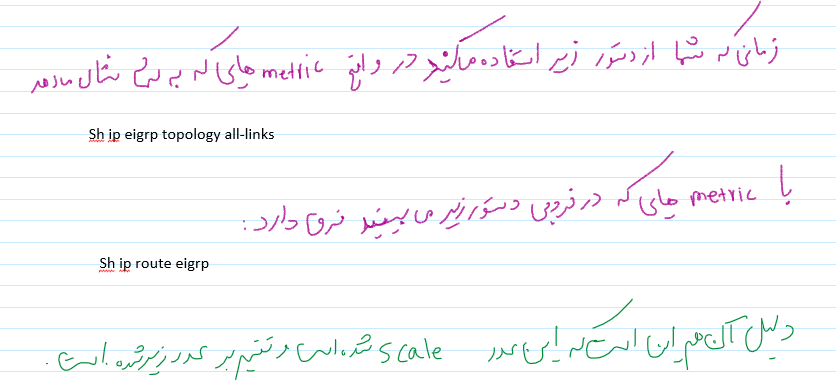 زمانی که شما از دستور زیر استفاده میکنید در واقع metric هایی که به شما نشان میدهد
Sh ip eigrp topology all-links
با metric هایی که در خروجی دستور زیر می بینید فرق دارد :
Sh ip route eigrp
دلیل آن هم این است که این عدد scale شده است و تقسیم بر عدد زیر شده است .